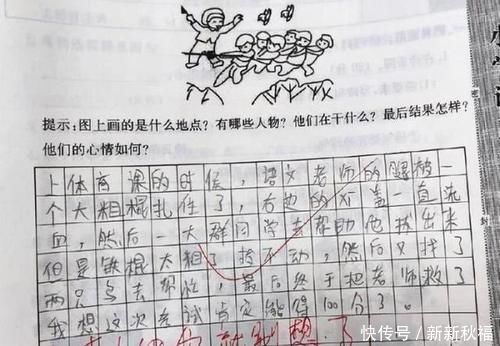 提示：图上画的是什么地点？有哪些人物？他们在干什么？最后结果怎样？
他们的心情如何？
上体育课的时候，语文老师的腿被一
个大粗棍扎住了，右边的膝盖一直流
血，然后一大群同学去帮助他拔出来
但是铁棍太粗了拔不动，然后又找了
两只鸟去帮忙，最后终于把老师救了
我想这次考试肯定能得100分了。
快传号／新新秋福